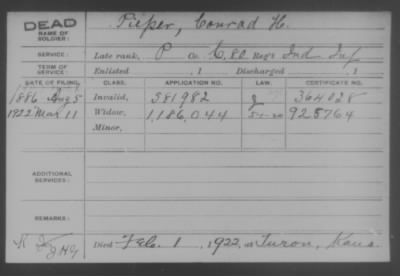 DEAD
NAME OF SOLDIER:
Pieper, Conrad H.
SERVICE:
Late rank, P Co. C, 80 Reg't Ind Inf
TERM OF SERVICE:
Enlisted , 1 Discharged , 1
DATE OF FILING. CLASS. APPLICATION NO. LAW. CERTIFICATE NO.
1886 Aug 5 Invalid, 381982 364028
1922 Mar 11 Widow, 1,186,044 5-1-20 925764
Minor,
ADDITIONAL SERVICES:
REMARKS:
Died Feb. 1, 1922, at Turon, Kans.